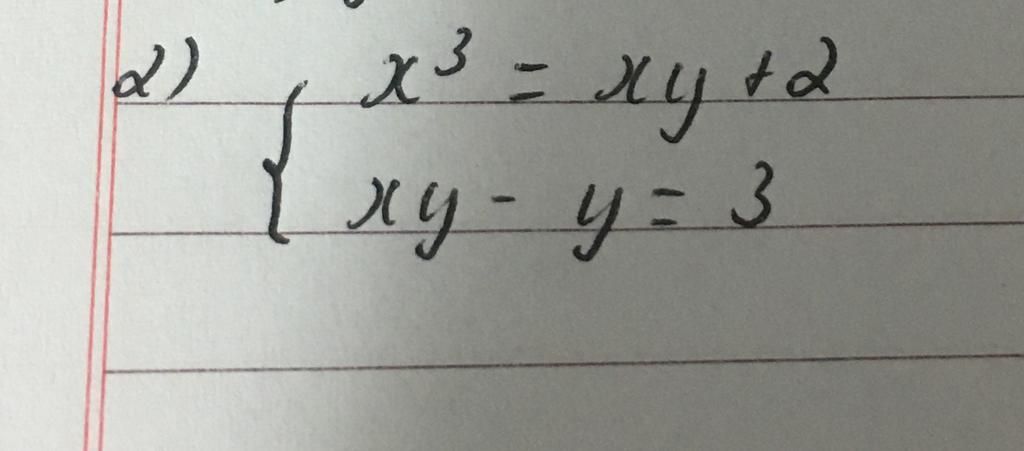 2) { x³ = xy + 2
xy - y = 3